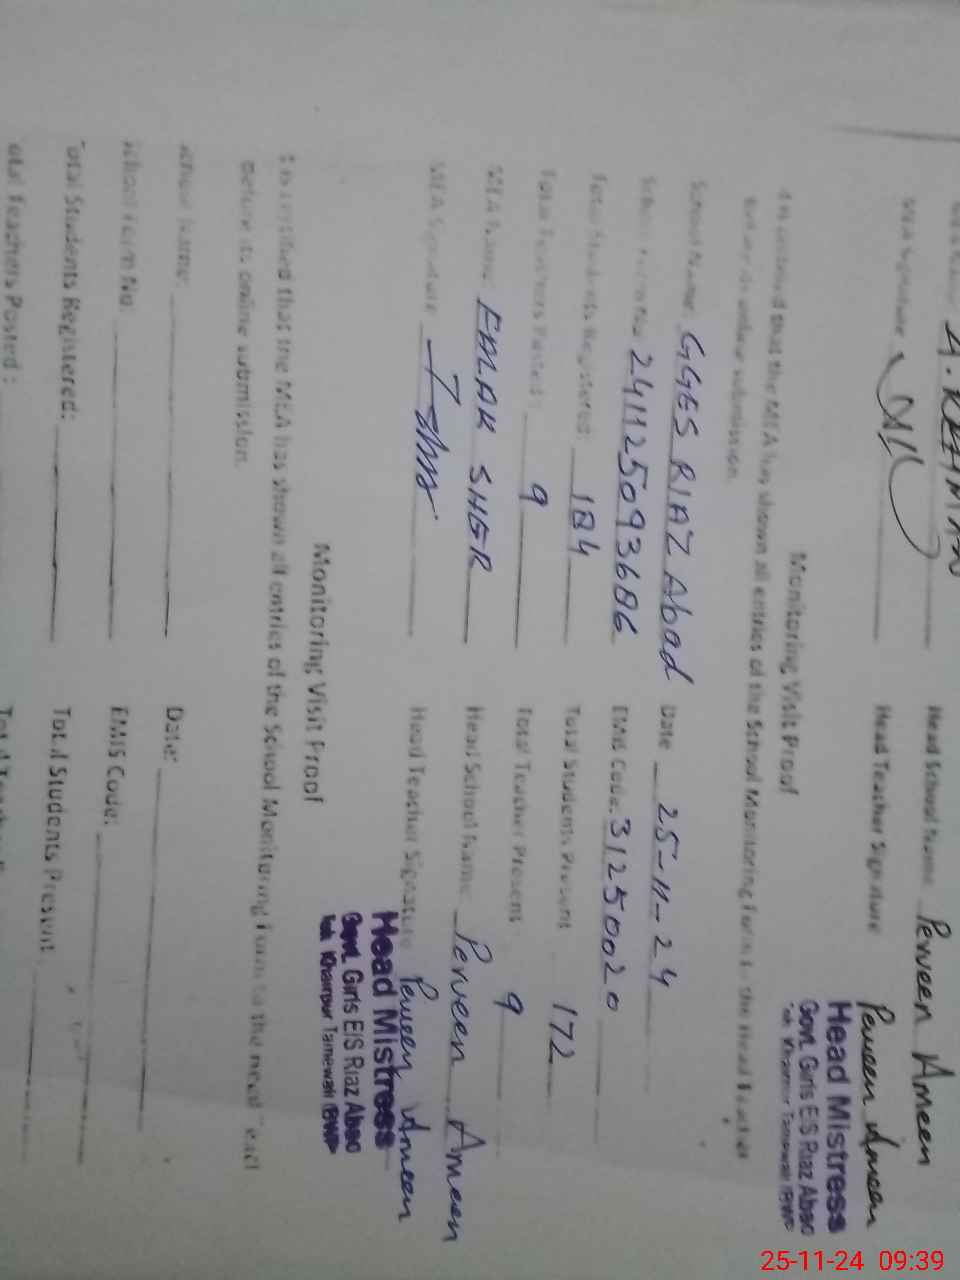 A. REHMAN Head School Name Perveen Ameen
MEA Signature Head Teacher Signature Perveen Ameen
Head Mistress
Govt. Girls E/S Riaz Abad
Teh. Khairpur Tamewali (BWP
Monitoring Visit Proof
It is certified that the MEA has shown all entries of the School Monitoring Form to the Head Teacher
before its online submission.
School Name: GGES RIAZ Abad Date 25-11-24
School Form No: 241125093686 EMIS Code: 31250020
Total Students Registered: 184 Total Students Present 172
Total Teachers Posted: 9 Total Teacher Present 9
MEA Name: SHER Head School Name Perveen Ameen
MEA Signature Head Teacher Signature Perveen Ameen
Head Mistress
Govt. Girls E/S Riaz Abad
Teh. Khairpur Tamewali (BWP
Monitoring Visit Proof
It is certified that the MEA has shown all entries of the School Monitoring Form to the Head Teacher
before its online submission.
School Name: Date:
School Form No: EMIS Code:
Total Students Registered: Total Students Present
Total Teachers Posted :
25-11-24 09:39